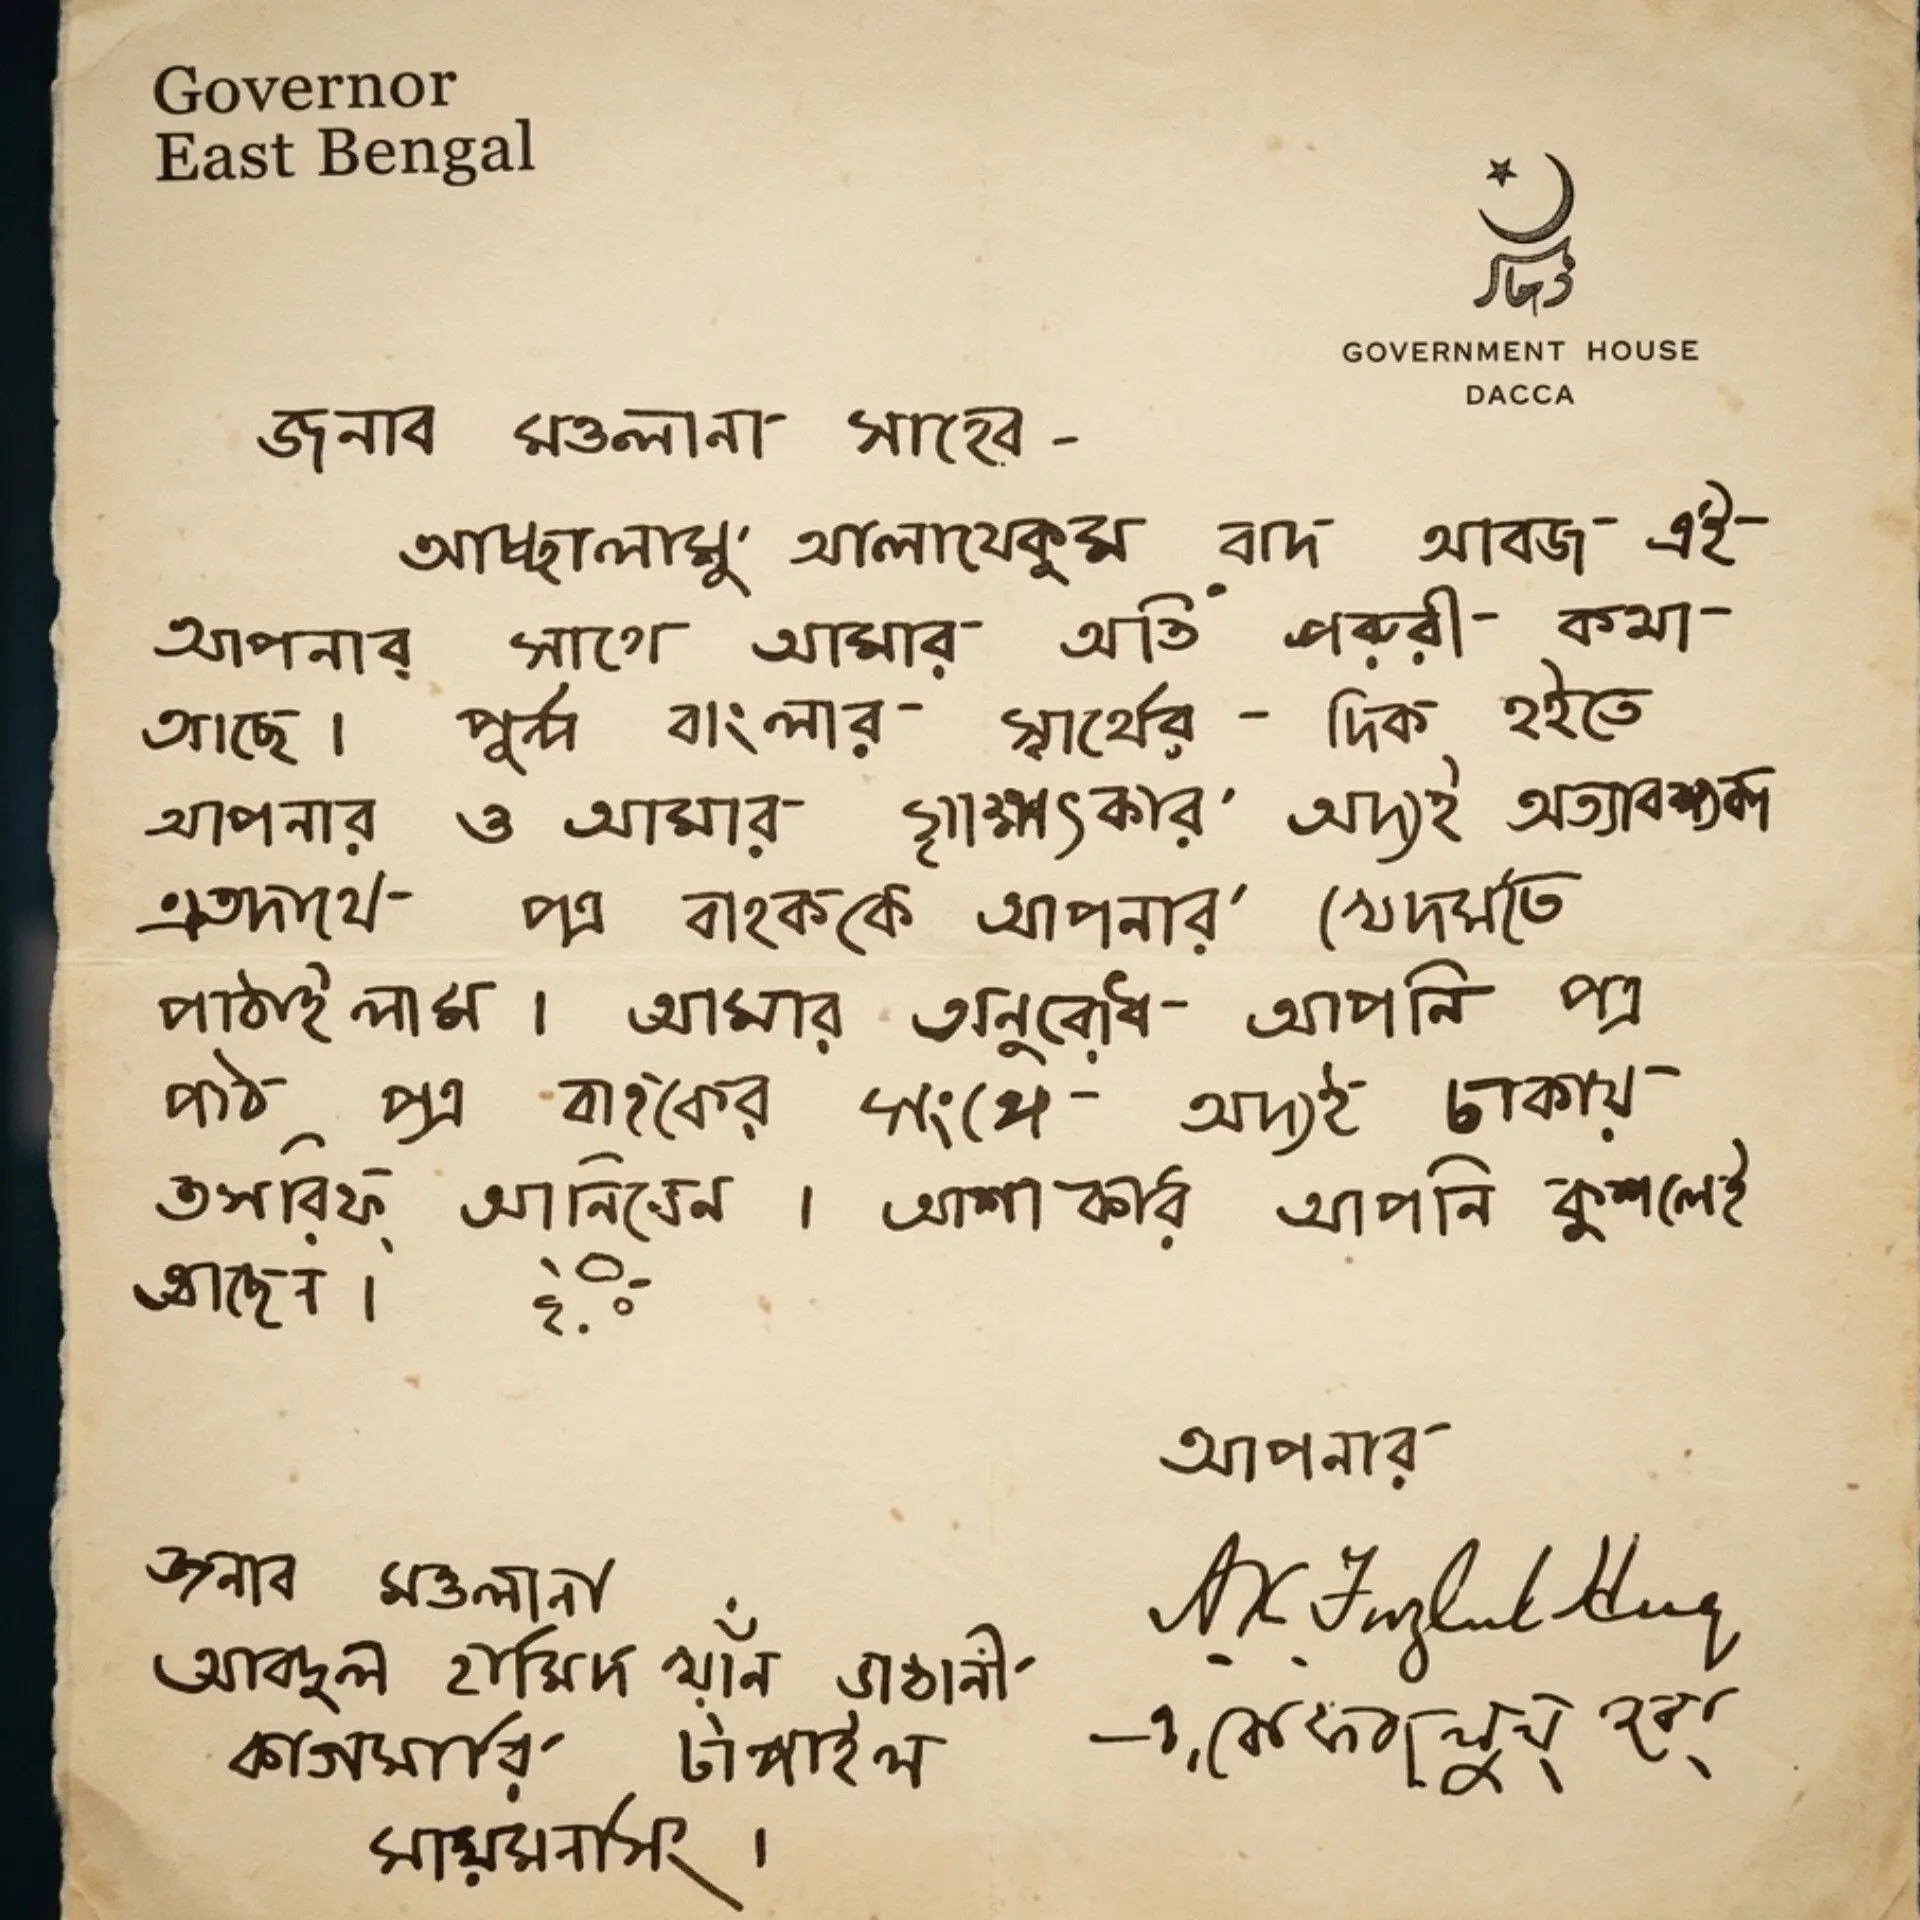 Governor
East Bengal
GOVERNMENT HOUSE
DACCA
জনাব মওলানা সাহেব -
আচ্ছালামু আলায়েকুম বাদ আরজ এই-
আপনার সাথে আমার অতি জরুরী কথা
আছে। পূর্ব্ব বাংলার স্বার্থের - দিক হইতে
আপনার ও আমার সাক্ষাৎকার অদ্যই অত্যাবশ্যক
এতদার্থে পত্র বাহককে আপনার খেদমতে
পাঠাইলাম। আমার অনুরোধ আপনি পত্র
পাঠ পত্র বাহকের সংগে অদ্যই ঢাকায়
তসরিফ্ আনিবেন। আশা করি আপনি কুশলেই
আছেন।
আপনার
A. K. Fazlul Huq
জনাব মওলানা
আবদুল হামিদ খাঁন ভাষানী
কাগমারি টাঙ্গাইল
মায়মনসিং।